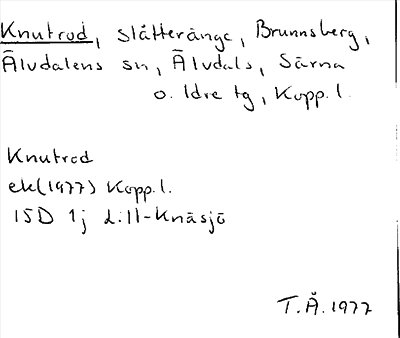 Knutrod, slåtteränge, Brunnsberg,
Älvdalens sn, Älvdals, Särna
o. Idre tg, Kopp. l.
Knutrod
ek (1977) Kopp. l.
15D 1j Lill-Knäsjö
T.Å. 1977